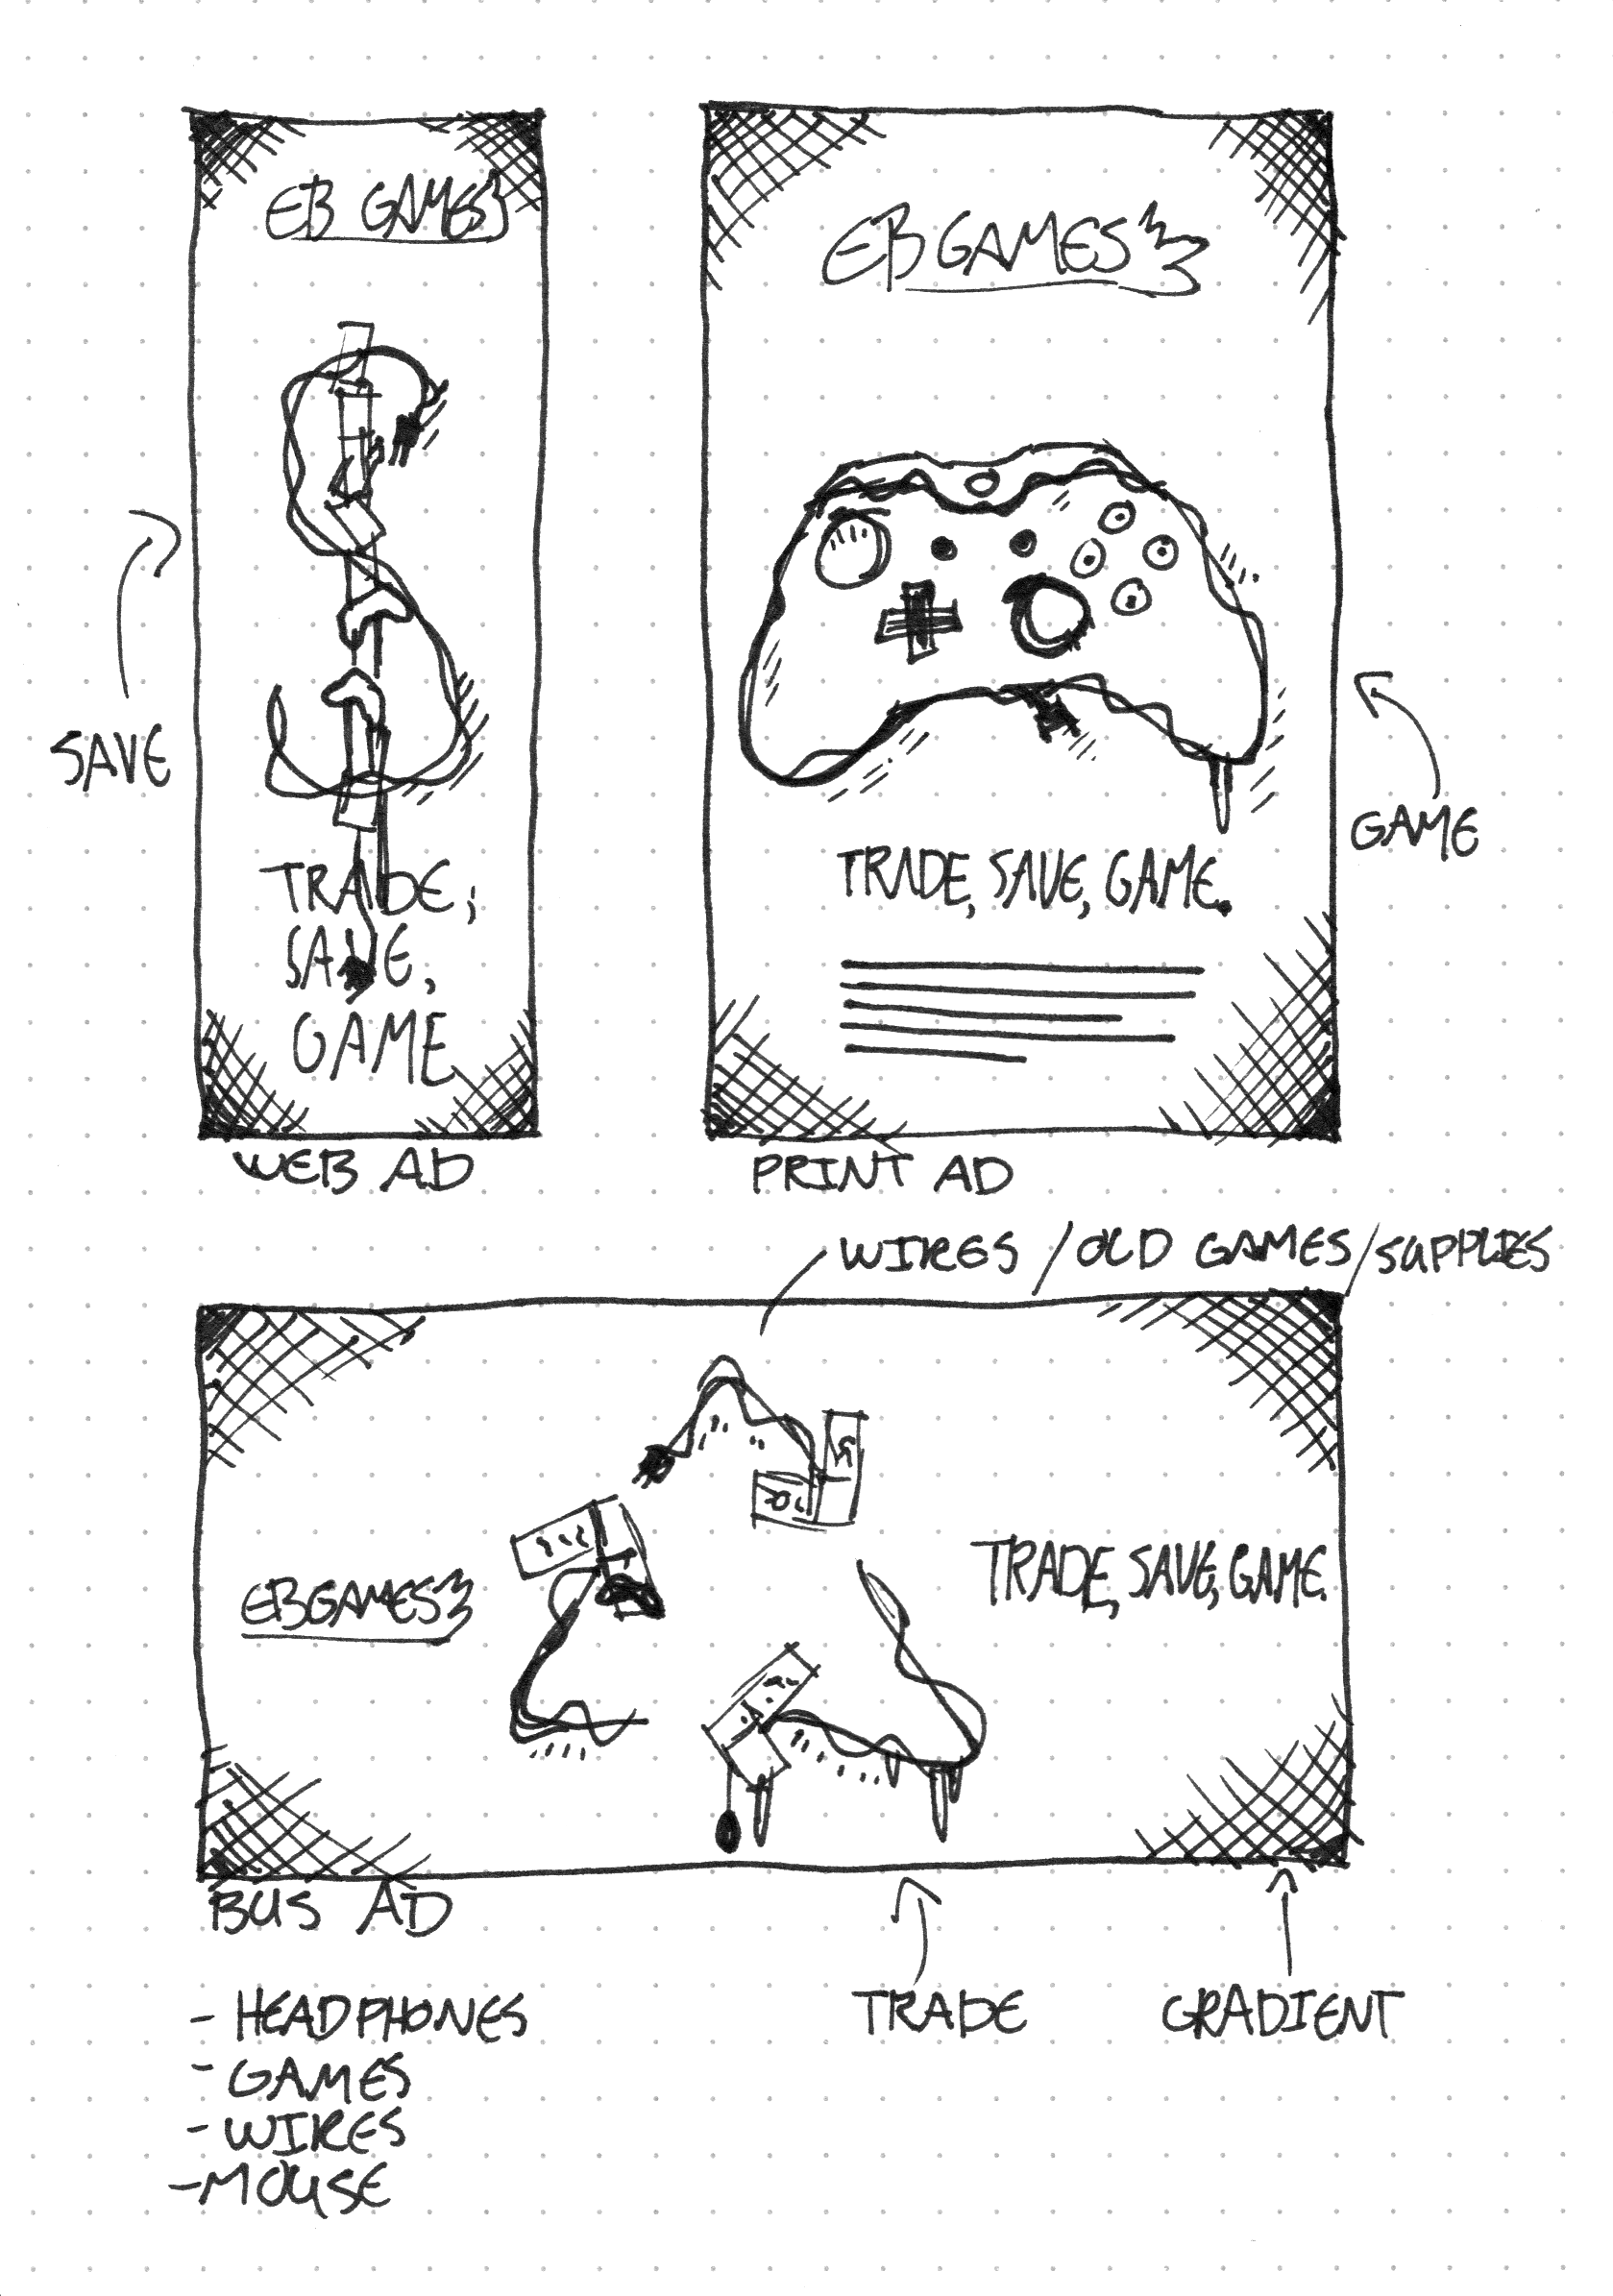 EB GAMES
SAVE
TRADE,
SAVE,
GAME
WEB AD
EB GAMES
GAME
TRADE, SAVE, GAME.
PRINT AD
WIRES / OLD GAMES / SUPPLIES
EBGAMES
TRADE, SAVE, GAME.
BUS AD
TRADE
GRADIENT
- HEADPHONES
- GAMES
- WIRES
- MOUSE